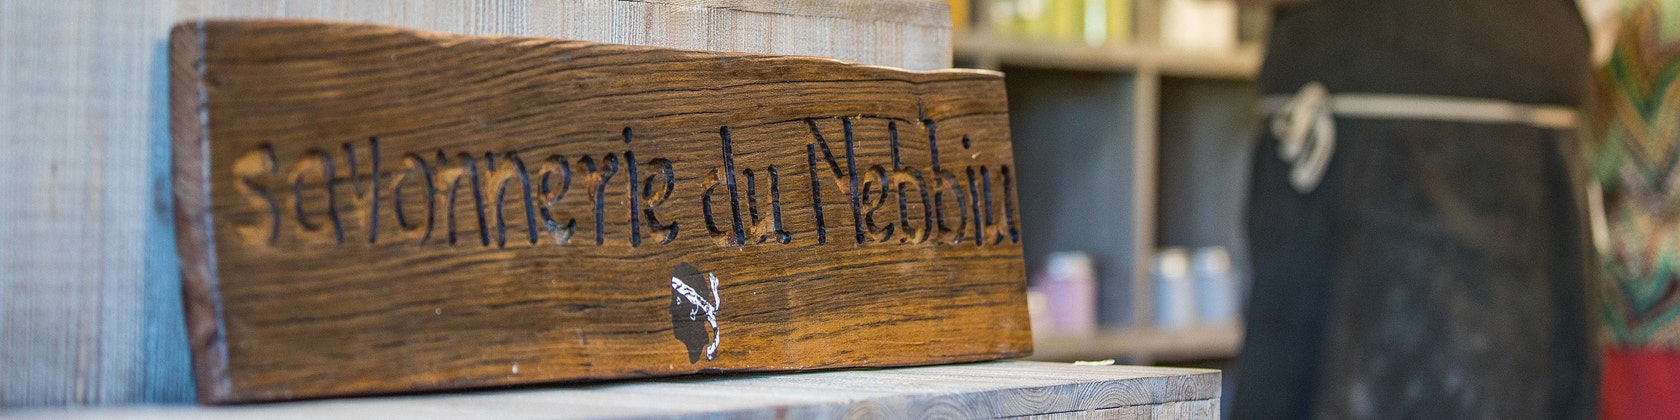 savonnerie du Nebbiu